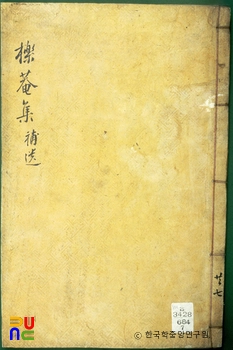 櫟菴集 補遺
共七
3428
684
© 한국학중앙연구원